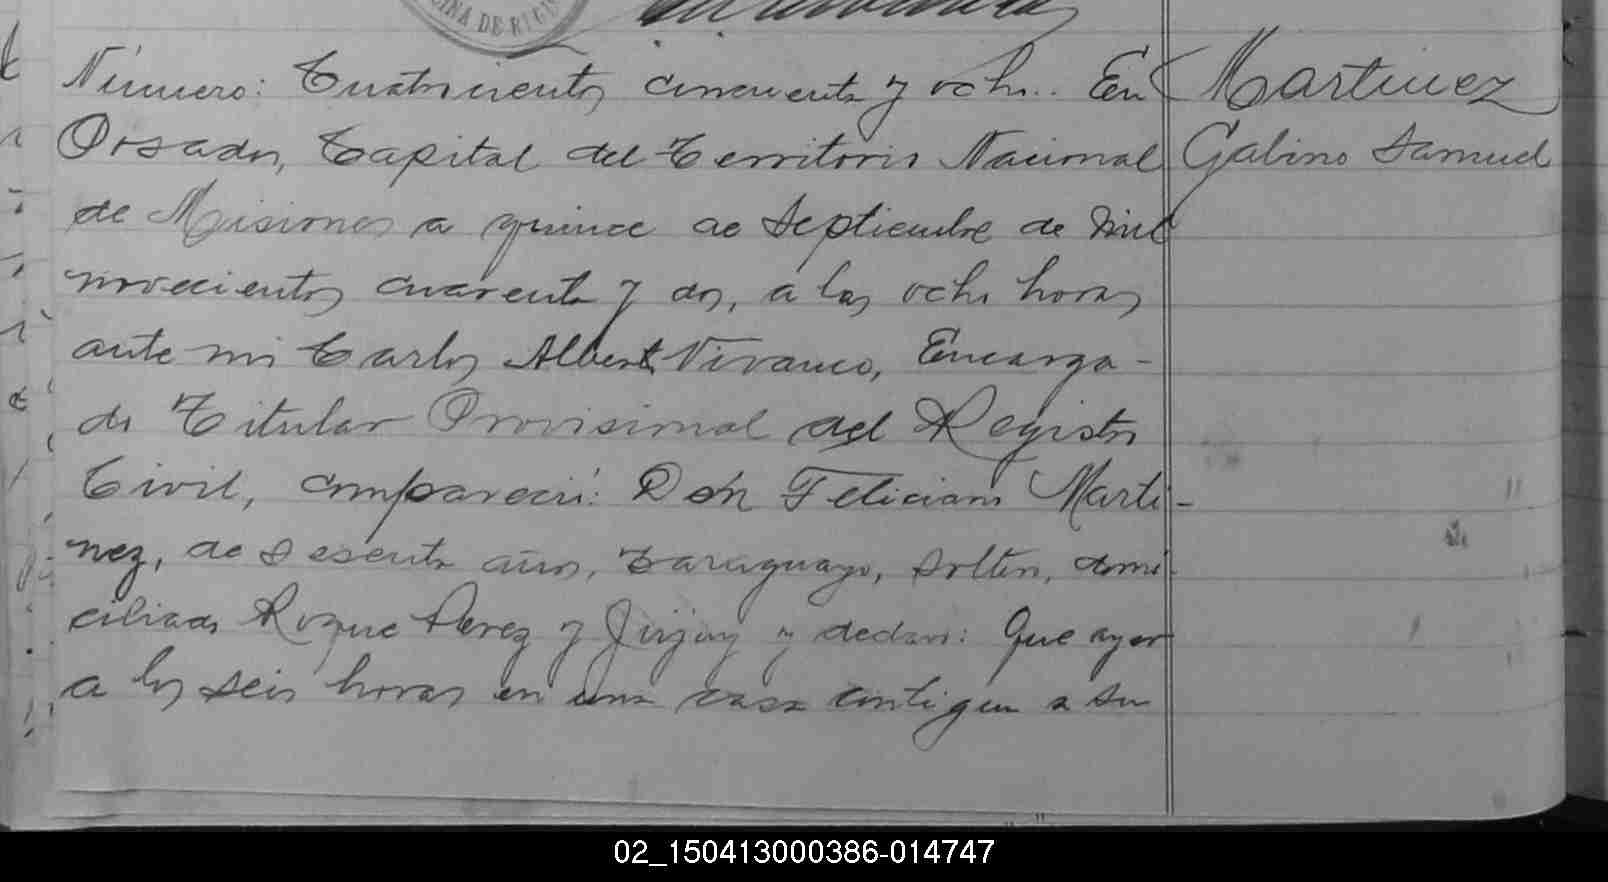 CINA DE REGIS
Número: Cuatrocientos cincuenta y ocho.. En
Posadas, Capital del Territorio Nacional
de Misiones a quince de Septiembre de mil
novecientos cuarenta y dos, a las ocho horas
ante mi Carlos Alberto Vivanco, Encarga-
do Titular Provisional del Registro
Civil, compareció: Don Feliciano Marti-
nez, de sesenta años, Paraguayo, soltero, domi-
ciliado Roque Perez y Jujuy y declaró: Que ayer
a las seis horas en una casa contigua a su
Martinez
Galino Samuel
02_150413000386-014747